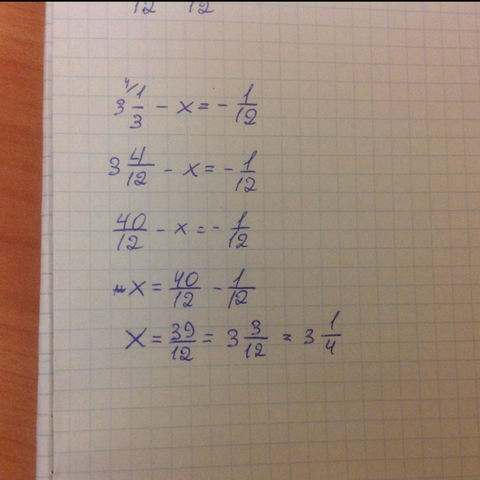 12 12
3 4/ 1/3 - x = - 1/12
3 4/12 - x = - 1/12
40/12 - x = - 1/12
x = 40/12 - 1/12
x = 39/12 = 3 3/12 = 3 1/4